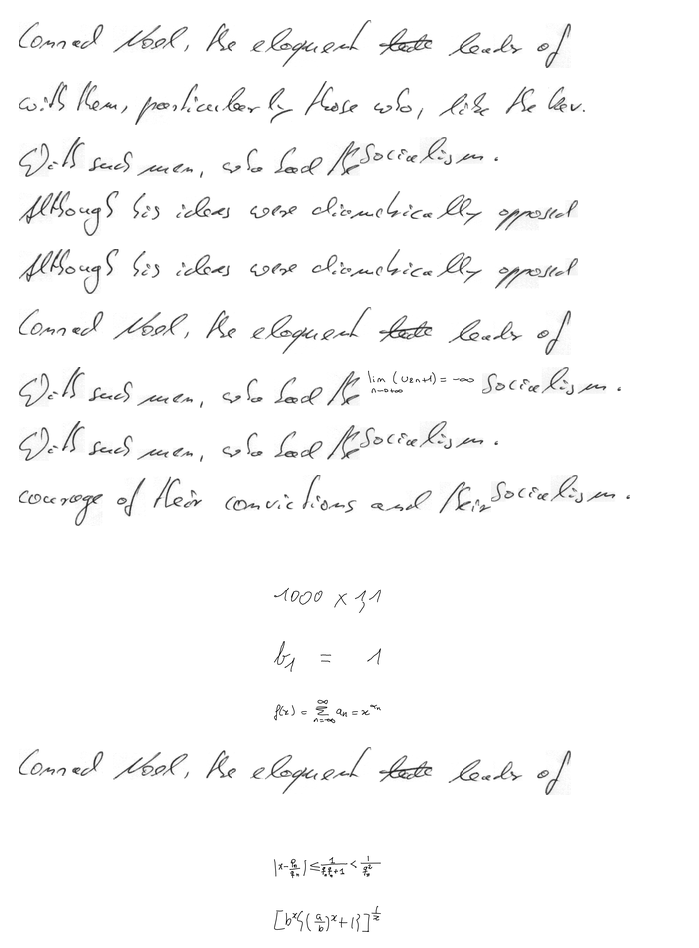 Conrad Noel, the eloquent leader of
with them, particularly those who, like the Rev.
With such men, who had the Socialism.
Although his ideas were diametrically opposed
Although his ideas were diametrically opposed
Conrad Noel, the eloquent leader of
With such men, who had the lim_{n→+∞} (u_{2n+1}) = -∞ Socialism.
With such men, who had the Socialism.
courage of their convictions and their Socialism.
1000 × 1,1
b_1 = 1
f(x) = \sum_{n=-∞}^{∞} a_n = x
Conrad Noel, the eloquent leader of
[b^x{(\frac{a}{b})^x+1}]^{\frac{1}{x}}